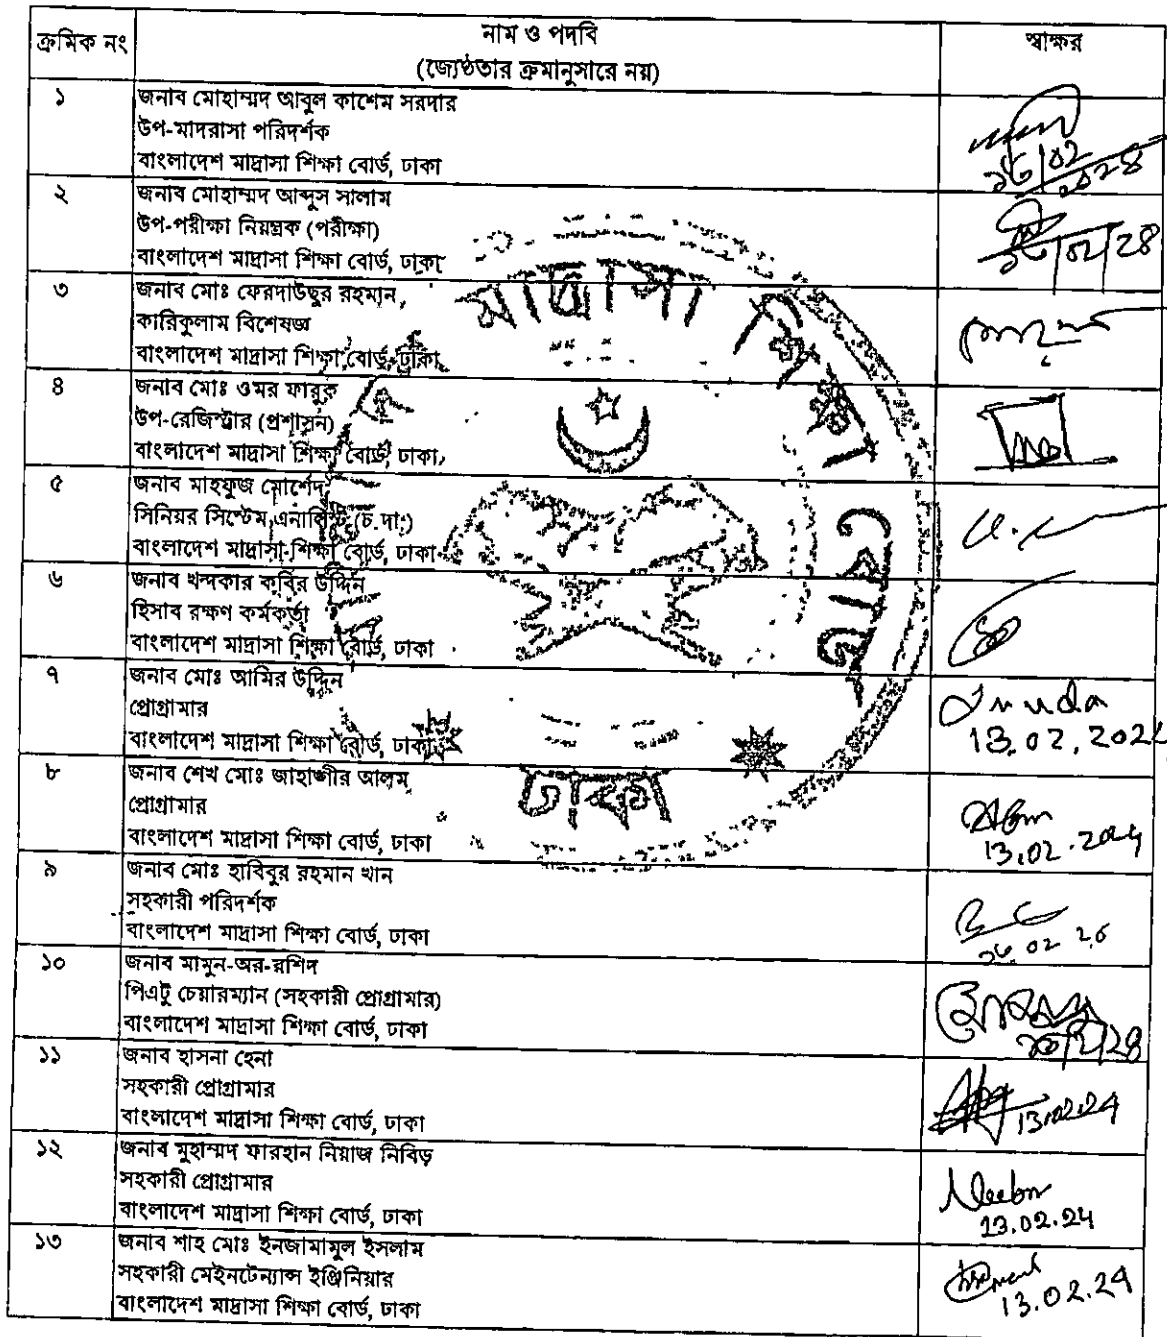 ক্রমিক নং
নাম ও পদবি
(জ্যেষ্ঠতার ক্রমানুসারে নয়)
স্বাক্ষর
১
জনাব মোহাম্মদ আবুল কাশেম সরদার
উপ-মাদরাসা পরিদর্শক
বাংলাদেশ মাদ্রাসা শিক্ষা বোর্ড, ঢাকা
২
জনাব মোহাম্মদ আব্দুস সালাম
উপ-পরীক্ষা নিয়ন্ত্রক (পরীক্ষা)
বাংলাদেশ মাদ্রাসা শিক্ষা বোর্ড, ঢাকা
৩
জনাব মোঃ ফেরদাউছুর রহমান
কারিকুলাম বিশেষজ্ঞ
বাংলাদেশ মাদ্রাসা শিক্ষা বোর্ড, ঢাকা
৪
জনাব মোঃ ওমর ফারুক
উপ-রেজিস্ট্রার (প্রশাসন)
বাংলাদেশ মাদ্রাসা শিক্ষা বোর্ড, ঢাকা
৫
জনাব মাহফুজ মোর্শেদ
সিনিয়র সিস্টেম এনালিস্ট (চ.দা:)
বাংলাদেশ মাদ্রাসা শিক্ষা বোর্ড, ঢাকা
৬
জনাব খন্দকার কবির উদ্দিন
হিসাব রক্ষণ কর্মকর্তা
বাংলাদেশ মাদ্রাসা শিক্ষা বোর্ড, ঢাকা
৭
জনাব মোঃ আমির উদ্দিন
প্রোগ্রামার
বাংলাদেশ মাদ্রাসা শিক্ষা বোর্ড, ঢাকা
13.02.2024
৮
জনাব শেখ মোঃ জাহাঙ্গীর আলম
প্রোগ্রামার
বাংলাদেশ মাদ্রাসা শিক্ষা বোর্ড, ঢাকা
13.02.2024
৯
জনাব মোঃ হাবিবুর রহমান খান
সহকারী পরিদর্শক
বাংলাদেশ মাদ্রাসা শিক্ষা বোর্ড, ঢাকা
১০
জনাব মামুন-অর-রশিদ
পিএটু চেয়ারম্যান (সহকারী প্রোগ্রামার)
বাংলাদেশ মাদ্রাসা শিক্ষা বোর্ড, ঢাকা
১১
জনাব হাসনা হেনা
সহকারী প্রোগ্রামার
বাংলাদেশ মাদ্রাসা শিক্ষা বোর্ড, ঢাকা
13.02.24
১২
জনাব মুহাম্মদ ফারহান নিয়াজ নিবিড়
সহকারী প্রোগ্রামার
বাংলাদেশ মাদ্রাসা শিক্ষা বোর্ড, ঢাকা
13.02.24
১৩
জনাব শাহ মোঃ ইনজামামুল ইসলাম
সহকারী মেইনটেন্যান্স ইঞ্জিনিয়ার
বাংলাদেশ মাদ্রাসা শিক্ষা বোর্ড, ঢাকা
13.02.24
মাদ্রাসা শিক্ষা বোর্ড
ঢাকা